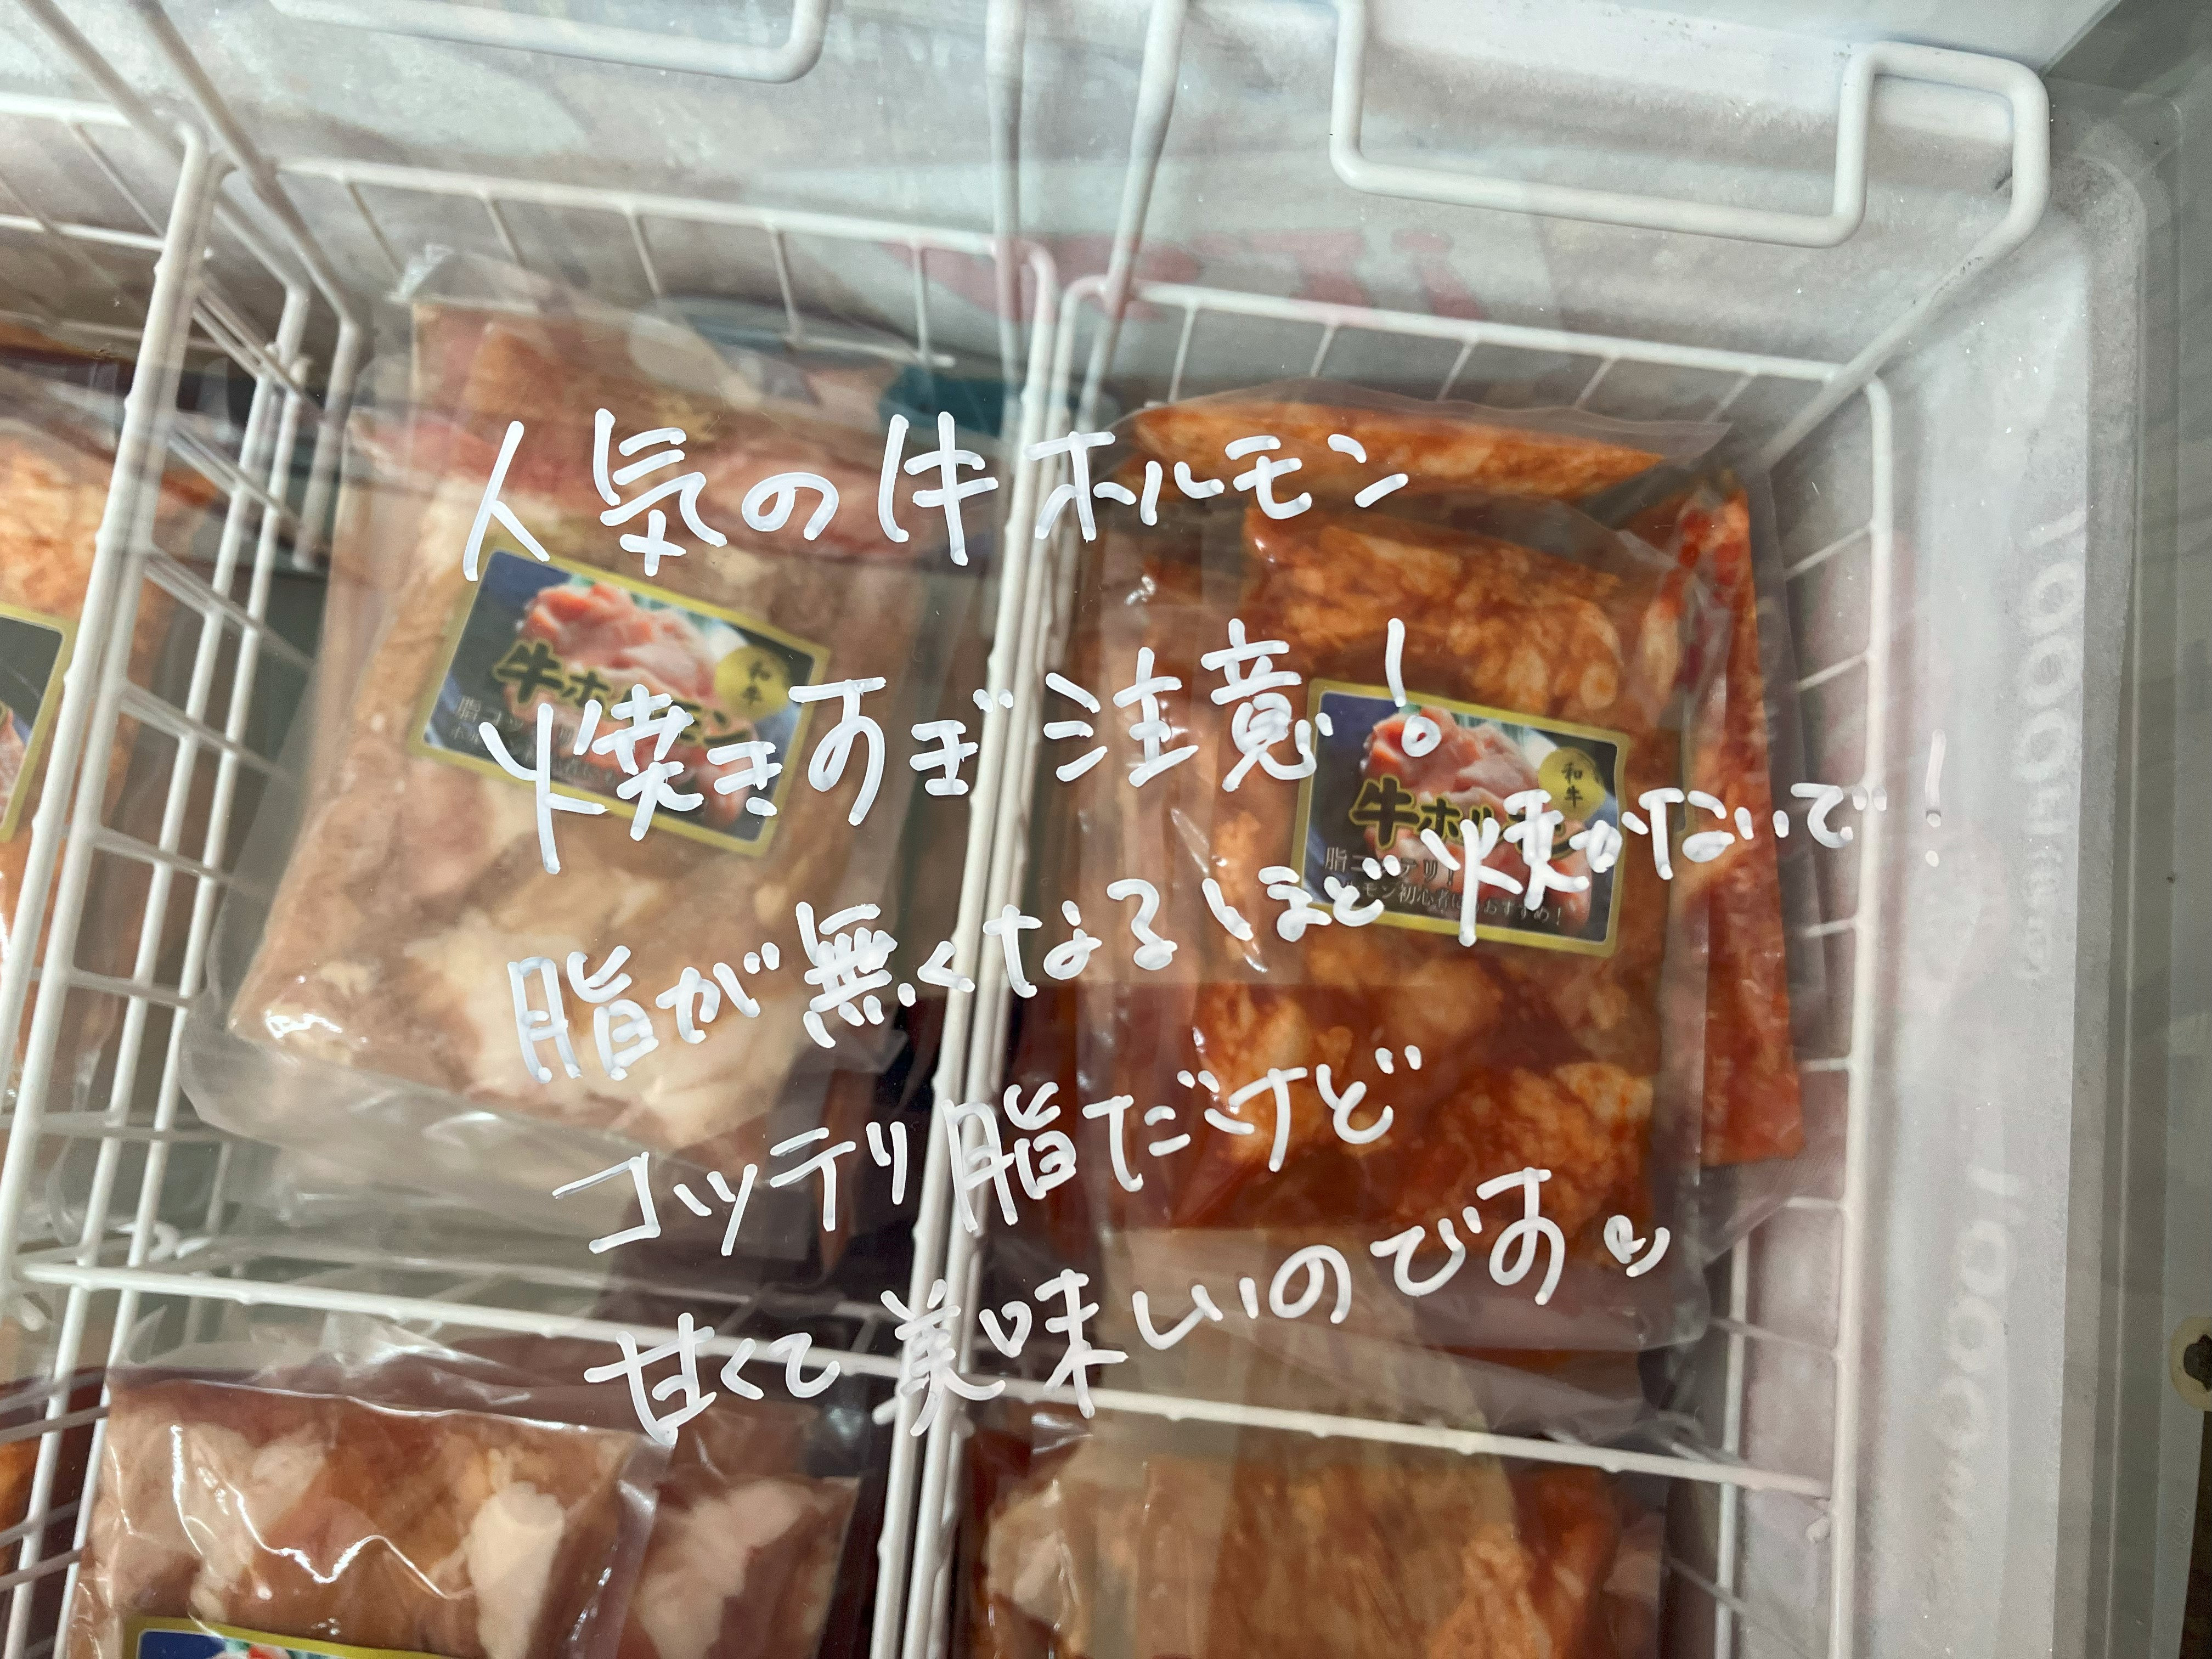 人気の牛ホルモン
焼きすぎ注意!
脂が無くなるほど焼かないで!
コッテリ脂だけど
甘くて美味しいのです
和牛
牛ホルモン
和牛
牛ホルモン
脂コッテリ!
ホルモン初心者にもおすすめ!